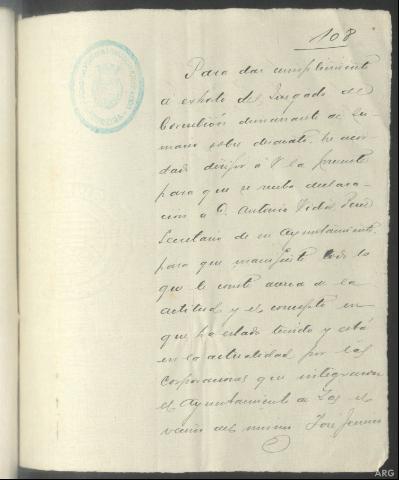 108
Para dar cumplimiento
á exhorto del Juzgado de
Corcubión dimanante de su-
mario sobre desacato, he acor-
dado dirijir á V la presente
para que se reciba declara-
ción á D. Antonio
Secretario de ese Ayuntamiento
para que manifieste todo lo
que le conste acerca de la
actitud y el concepto en
que ha estado tenido y está
en la actualidad por las
Corporaciones que integraron
el Ayuntamiento de Zas el
vecino del mismo José
ARG